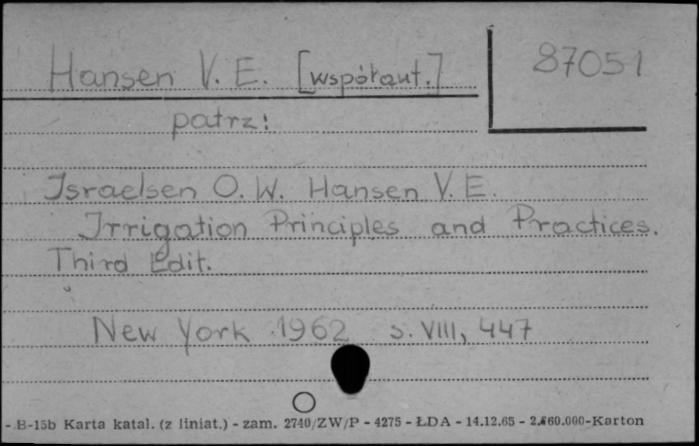 Hansen V. E. [współaut.]
87051
patrz:
Israelsen O. W. Hansen V. E.
Irrigation Principles and Practices.
Third Edit.
New York 1962 s. VIII, 447
- B-15b Karta katal. (z liniat.) - zam. 2740/ZW/P - 4275 - ŁDA - 14.12.65 - 2.860.000-Karton